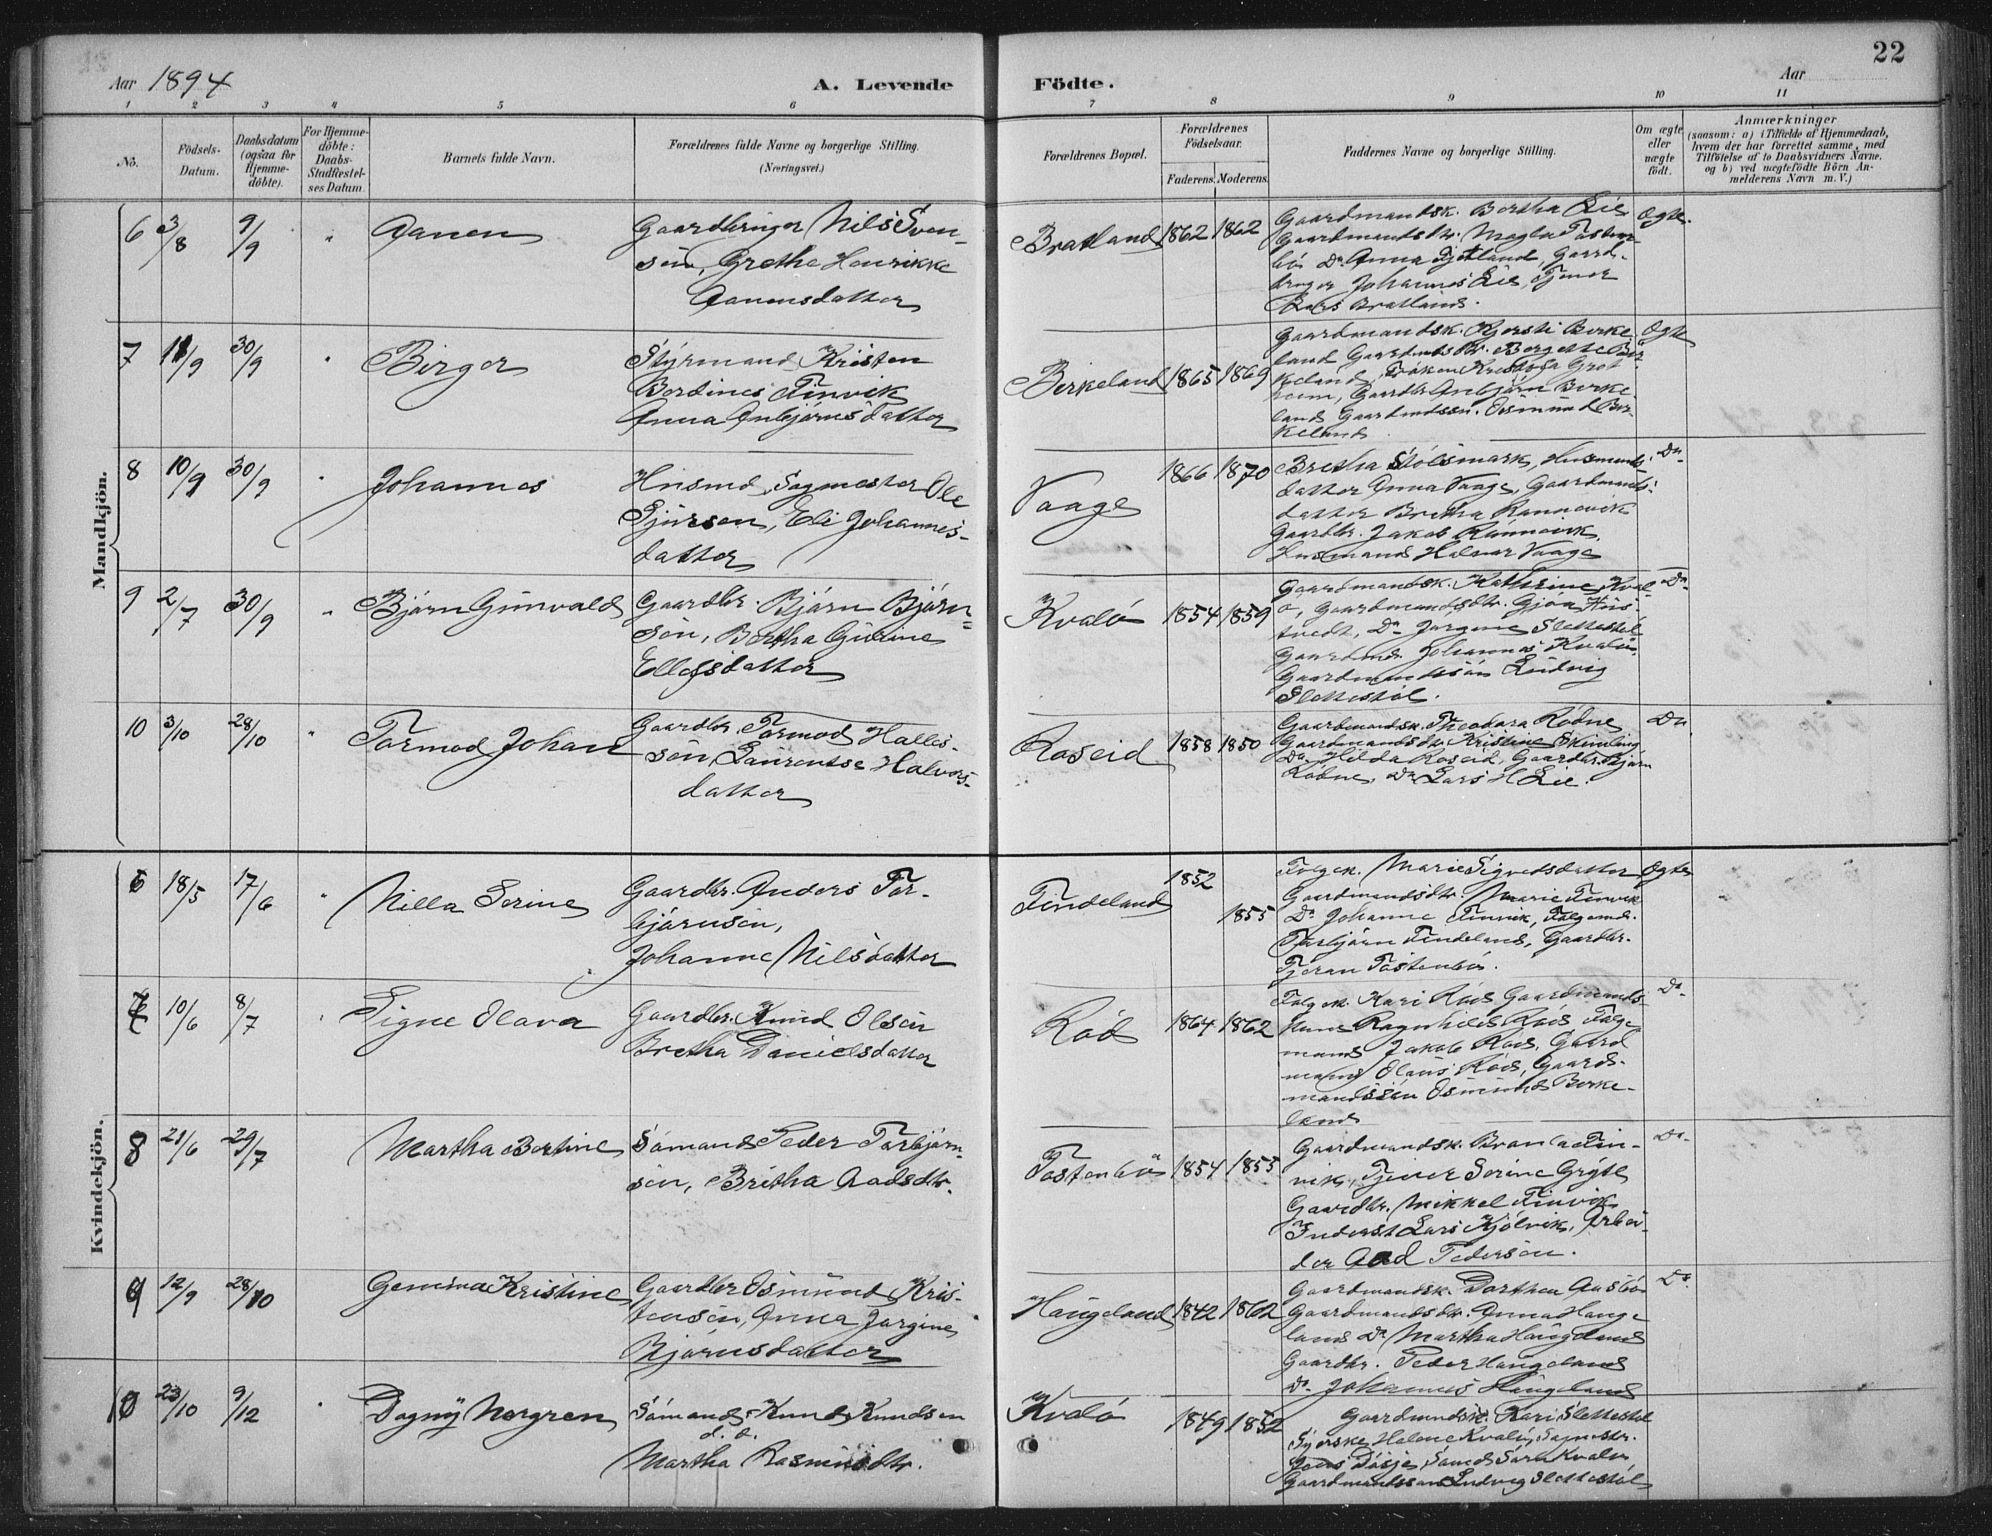 22
Aar 1894
A. Levende
Födte.
Aar
1 2 3 4 5 6 7 8 9 10 11
No.
Födsels-
Datum.
Daabsdatum
(ogsaa for
Hjemme-
döbte).
For Hjemme-
döbte:
Daabs-
Stadfæstel-
ses Datum.
Barnets fulde Navn.
Forældrenes fulde Navne og borgerlige Stilling.
(Næringsvei.)
Forældrenes Bopæl.
Forældrenes
Födselsaar.
Faderens. Moderens.
Faddernes Navne og borgerlige Stilling.
Om ægte
eller
uægte
födt.
Anmærkninger
(saasom: a) i Tilfælde af Hjemmedaab,
hvem der har forrettet samme, med
Tilföielse af to Daabsvidners Navne.
og b) ved uægtefödte Börn An-
melderens Navn m. V.)
Mandkjön.
6 3/8 9/9 " Aanen
Gaardbruger Nils Sven-
sön, Grethe Henrikke
Aanensdatter
Bratland 1862 1862
Gaardmandsk. Bertha Lie
Gaardmandsdtr.
Do Anna Gjetland, Gaard-
bruger Johannes Lie, Tjener
Lars Bratland.
Ægte.
7 11/9 30/9 " Birger
Styrmand Kristen
Berdines Finvik
Anna Anbjörnsdatter
Birkeland 1865 1869
Gaardmandsk. Kjersti Birke
land Gaardmdsdtr. Bergitte Bir
keland, Fröken
heim, Gaardbr. Anbjörn Birke
land Gaardmdssön. Osmund Bir-
keland
Ægte
8 10/9 30/9 " Johannes
Husmd, Sagmester Ole
Sjursen, Eli Johannes-
datter
Vaage 1866 1870
Bretha Stölsmark, Husmands-
datter Anna Vaage, Gaardmands-
datter Bretha Rannevik
Gaardbr. Jakob Rannevik,
Husmand Halvar Vaage
Do
9 2/7 30/9 " Björn Gunvald
Gaardbr. Björn Björn-
sön, Bertha Gurine
Ellefsdatter
Kvalö 1854 1859
Gaardmandsk. Kathrine Kval-
ö, Gaardmandsdtr. Gjöa
tvedt, Do Jorgine Slettestöl
Gaardmd. Johannes Kvalö
Gaardmandssön Ludvig
Slettestöl.
Do
10 3/10 28/10 " Tormod Johan
Gaardbr. Tormod Halles-
sön, Laurentse Halvors-
datter
Roseid 1858 1850
Gaardmandsk. Theodora Rödne
Gaardmandsdtr. Kristine Skimling
Do Hilda Roseid, Gaardbr. Björn
Rödne, Do Lars H Lie.
Do
Kvindekjön.
6 18/5 17/6 " Nilla Serine
Gaardbr. Anders Tor-
björnsön,
Johanne Nilsdatter
Findeland 1852 1855
Folgek. Marie Sigvedsdatter
Gaardmandsdtr. Marie Finvik
Do Johanne Finvik, Folgemd.
Torbjörn Findeland, Gaardbr.
Tjeran Tostenbö.
Ægte
7 10/6 8/7 " Signe Olava
Gaardbr. Knud Olsön
Bretha Danielsdatter
Röd 1864 1862
Folgek. Kari Röd Gaardmands-
Ragnhild Röd Folge
mand Jakob Röd, Gaard
mand Olaus Röd, Gaard-
mandssön Osmund Birke-
land
Do
8 21/6 29/7 Martha Bertine
Sömand Peder Torbjörn-
sön, Britha Aadsdtr.
Tostenbö 1854 1855
Gaardmandsk. Fin-
vik, Tjener Serine
Gaardbr. Mikkel Finvik
Inderst Lars Kjölvik, Arbei-
der Aad Pedersen.
Do
9 12/9 28/10 Gemina Kristine
Gaardbr Osmund Kris-
tensön, Anna Jorgine
Björnsdatter
Haugeland 1842 1862
Gaardmandsk. Dorthea Aasbö
Gaardmandsdtr. Anna Hauge
land Do Martha Haugeland
Gaardbr. Peder Haugeland
Do Johannes Haugeland
Do
10 23/10 9/12 " Dagny Norgren
Sömand Knud Knudsen
Martha Rasmusdtr.
Kvalö 1849 1852
Gaardmandsk. Kari Slettestöl
Helene Kvalö, Sagmester
Sömd Kvalö
Gaardmandssön Ludvig Slettestöl